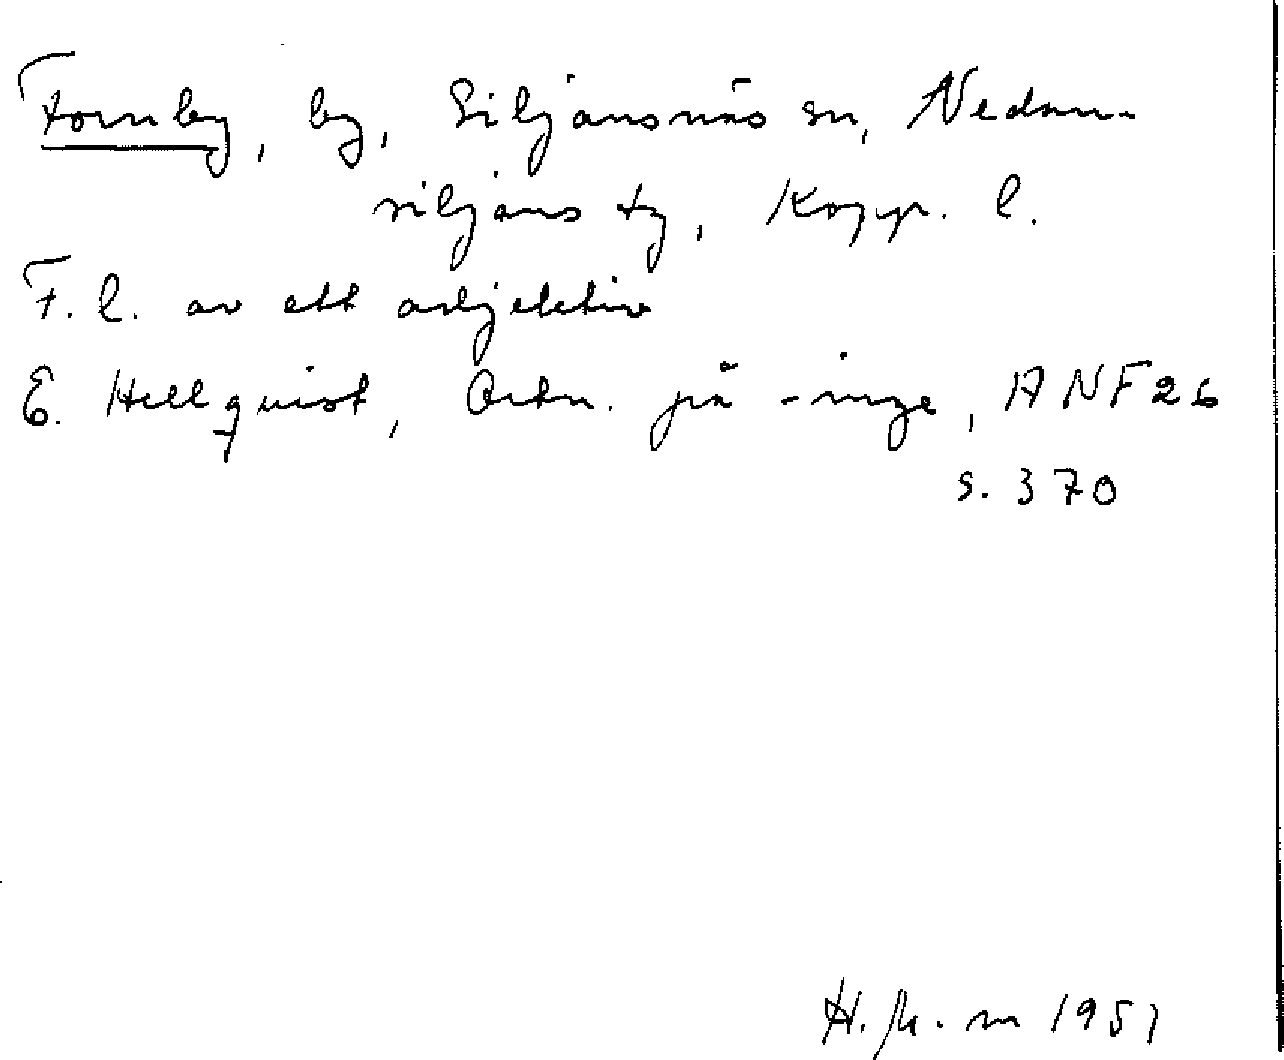 Fornby, by, Siljansnäs sn, Nedan-
siljans tg, Kopp. l.
F. l. av ett adjektiv
E. Hellquist, Ortn. på -inge, ANF 26
s. 370
H. 1951